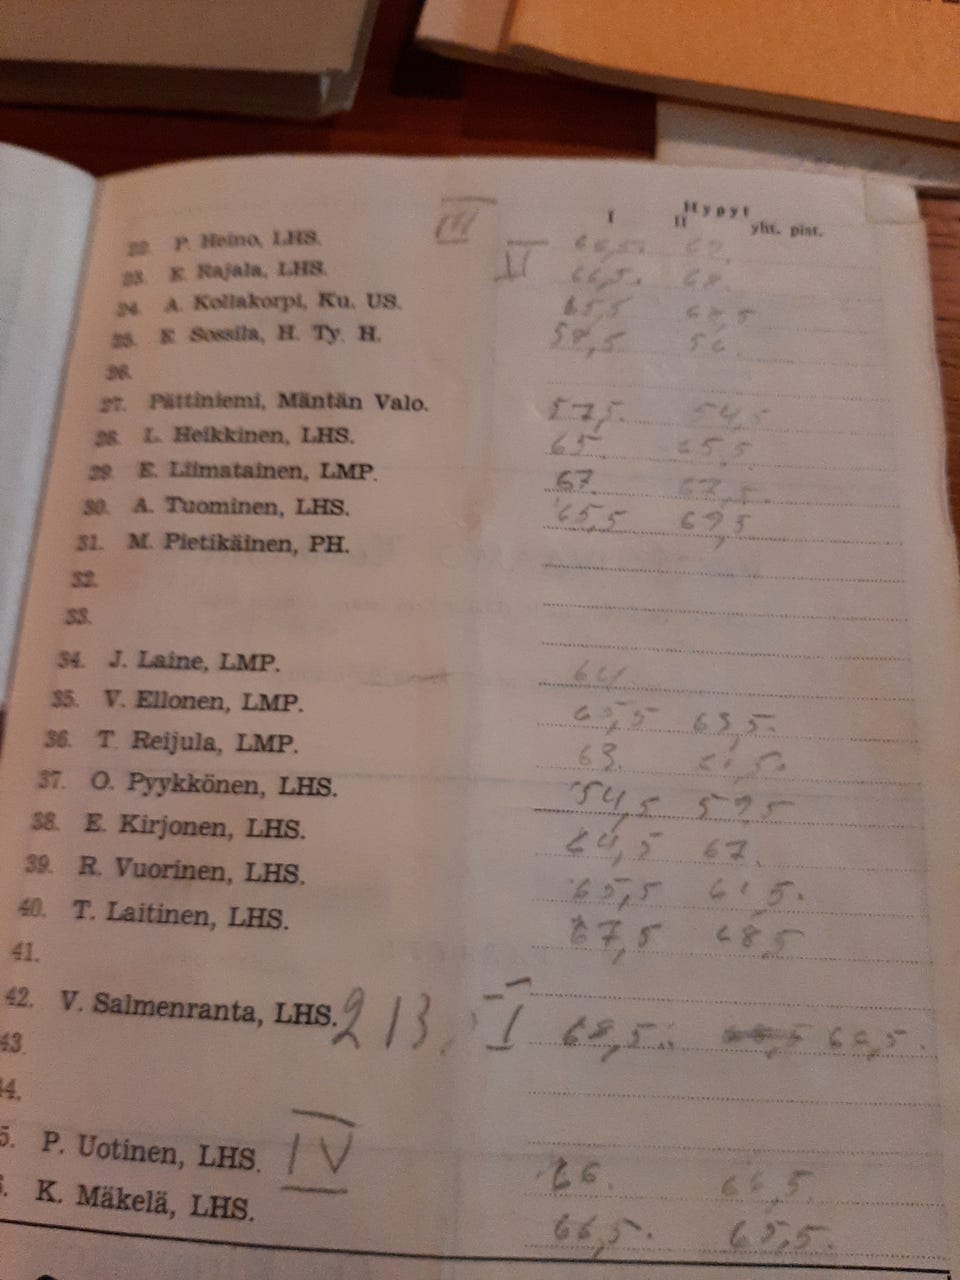 Hypyt
I II yht. pist.
22. P. Heino, LHS. III 66,5. 69.
23. E. Rajala, LHS. II 66,5. 68.
24. A. Kollakorpi, Ku. US. 65,5
25. E. Sossila, H. Ty. H. 58,5
26.
27. Pättiniemi, Mäntän Valo. 57,5. 54,5
28. L. Heikkinen, LHS. 65. 65,5
29. E. Liimatainen, LMP. 67. 67,5.
30. A. Tuominen, LHS. 65,5 69,5
31. M. Pietikäinen, PH.
32.
33.
34. J. Laine, LMP. 64
35. V. Ellonen, LMP. 65,5 63,5.
36. T. Reijula, LMP. 63. 61,5.
37. O. Pyykkönen, LHS. 54,5 59,5
38. E. Kirjonen, LHS. 64,5 67.
39. R. Vuorinen, LHS. 65,5 61,5.
40. T. Laitinen, LHS. 67,5 68,5
41.
42. V. Salmenranta, LHS. 213. I 68,5. 66,5.
43
44.
5. P. Uotinen, LHS. IV 66. 66,5.
K. Mäkelä, LHS. 66,5. 65,5.